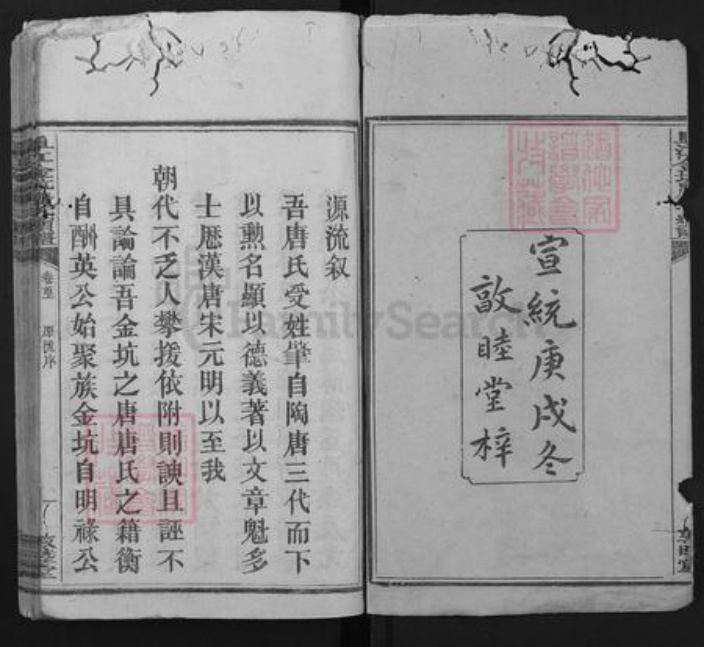 宣統庚戌冬
敦睦堂梓
源流叙
吾唐氏受姓肇自陶唐三代而下
以勲名顯以德義著以文章魁多
士歷漢唐宋元明以至我
朝代不乏人攀援依附則諛且誣不
具論論吾金坑之唐唐氏之籍衡
自酬英公始聚族金坑自明祿公
FamilySearch